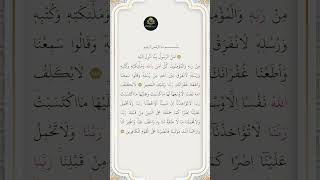 بِسْمِ اللَّهِ الرَّحْمَٰنِ الرَّحِيمِ
ءَامَنَ الرَّسُولُ بِمَا أُنزِلَ إِلَيْهِ
مِن رَّبِّهِ وَالْمُؤْمِنُونَ كُلٌّ ءَامَنَ بِاللَّهِ وَمَلَٰئِكَتِهِ وَكُتُبِهِ
وَرُسُلِهِ لَا نُفَرِّقُ بَيْنَ أَحَدٍ مِّن رُّسُلِهِ وَقَالُوا سَمِعْنَا
وَأَطَعْنَا غُفْرَانَكَ رَبَّنَا وَإِلَيْكَ الْمَصِيرُ ۝ لَا يُكَلِّفُ
اللَّهُ نَفْسًا إِلَّا وُسْعَهَا لَهَا مَا كَسَبَتْ وَعَلَيْهَا مَا اكْتَسَبَتْ
رَبَّنَا لَا تُؤَاخِذْنَا إِن نَّسِينَا أَوْ أَخْطَأْنَا رَبَّنَا وَلَا تَحْمِلْ
عَلَيْنَا إِصْرًا كَمَا حَمَلْتَهُ عَلَى الَّذِينَ مِن قَبْلِنَا رَبَّنَا
وَلَا تُحَمِّلْنَا مَا لَا طَاقَةَ لَنَا بِهِ وَاعْفُ عَنَّا وَاغْفِرْ لَنَا
وَارْحَمْنَا أَنتَ مَوْلَانَا فَانصُرْنَا عَلَى الْقَوْمِ الْكَافِرِينَ ۝